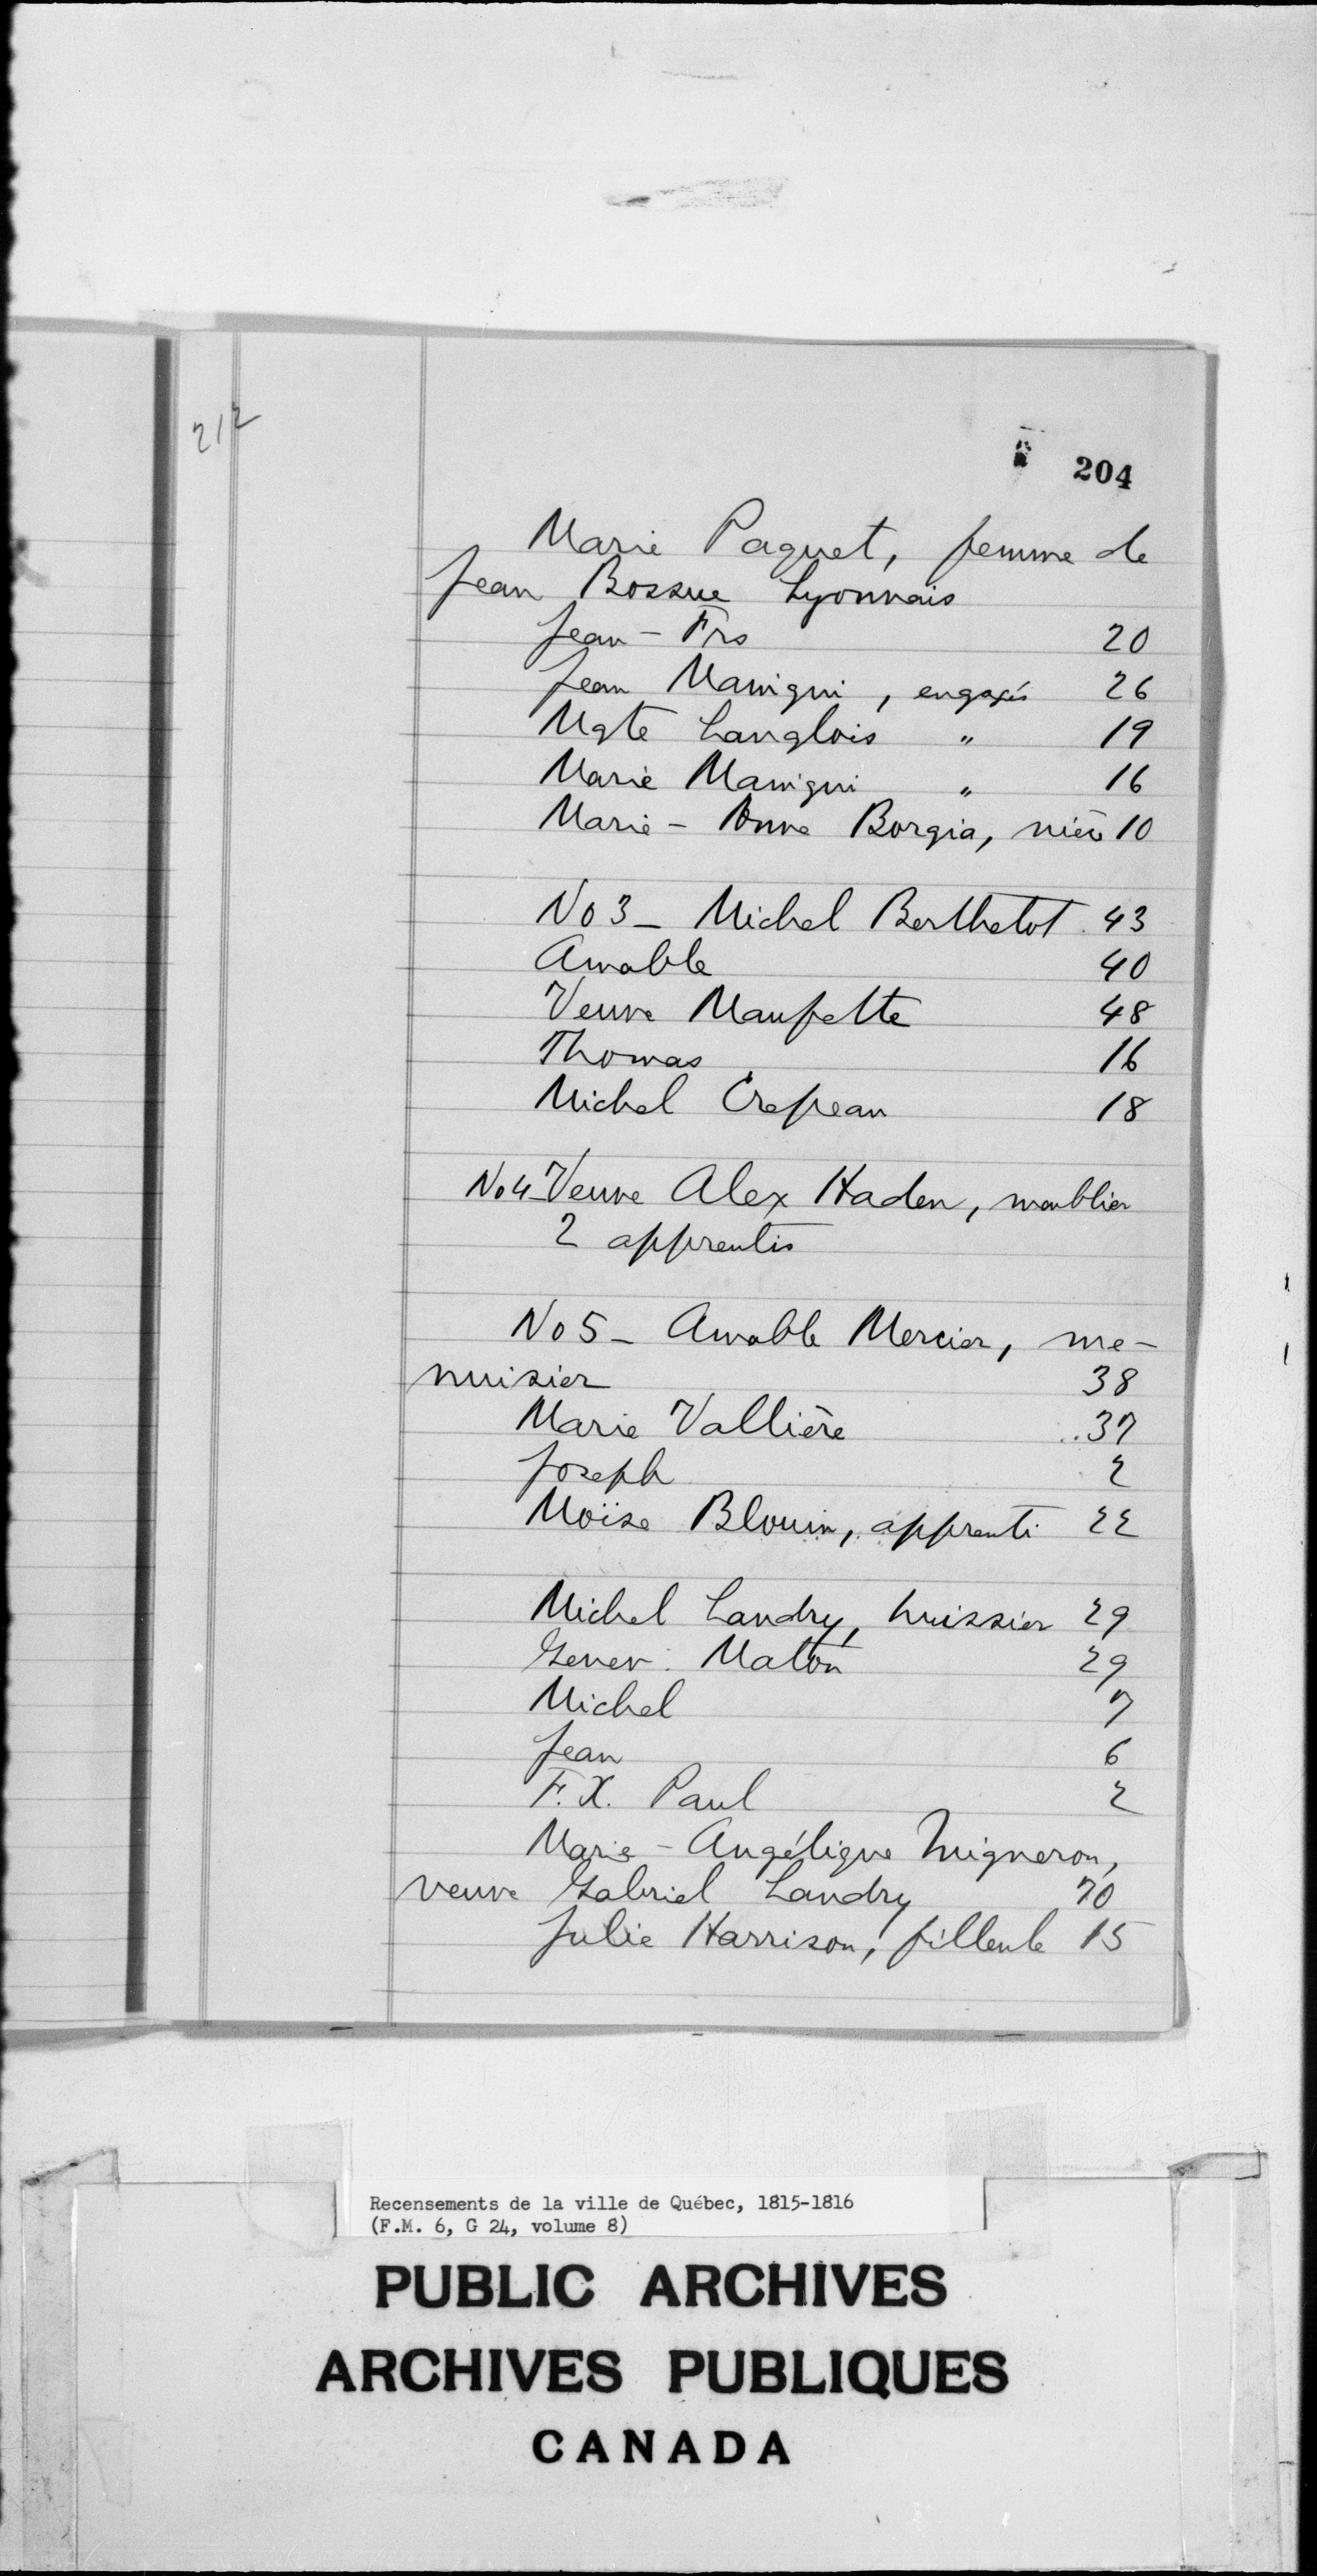 212
204
Marie Paquet, femme de
Jean Bossue Lyonnais
Jean-Frs 20
Jean Manigui, engagés 26
Mgte Langlois " 19
Marie Manigui " 16
Marie-Anne Borgia, nièce 10
No 3 - Michel Berthelot 43
Amable 40
Veuve Maufette 48
Thomas 16
Michel Crepeau 18
No 4 - Veuve Alex Haden, meublier
2 apprentis
No 5 - Amable Mercier, me-
nuisier 38
Marie Vallière 37
Joseph 2
Moïse Blouin, apprenti 22
Michel Landry, huissier 29
Genev. Maton 29
Michel 7
Jean 6
F.X. Paul 2
Marie-Angélique Migneron,
veuve Gabriel Landry 70
Julie Harrison, filleule 15
Recensements de la ville de Québec, 1815-1816
(F.M. 6, G 24, volume 8)
PUBLIC ARCHIVES
ARCHIVES PUBLIQUES
CANADA